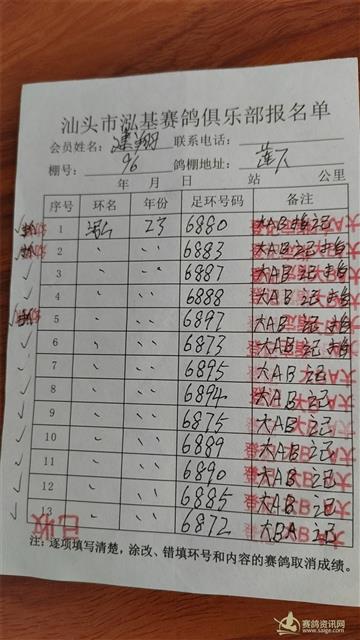 汕头市泓基赛鸽俱乐部报名单
会员姓名: 建翔 联系电话:
棚号: 96 鸽棚地址: 莲下
年 月 日 站 公里
序号 环名 年份 足环号码 备注
1 泓 23 6880 大AB 记
2 〃 〃 6883 大AB 记
3 〃 〃 6887 大AB 记
4 〃 〃 6888 大AB 记
5 〃 〃 6897 大AB 记
6 〃 〃 6873 大AB 记
7 〃 〃 6895 大AB 记
8 〃 〃 6894 大AB 记
9 〃 〃 6875 大AB 记
10 〃 〃 6889 大AB 记
11 〃 〃 6890 大AB 记
12 〃 〃 6885 大AB 记
13 〃 〃 6872 大BA 记
已收
注:逐项填写清楚,涂改、错填环号和内容的赛鸽取消成绩。
赛鸽资讯网
www.saige.com